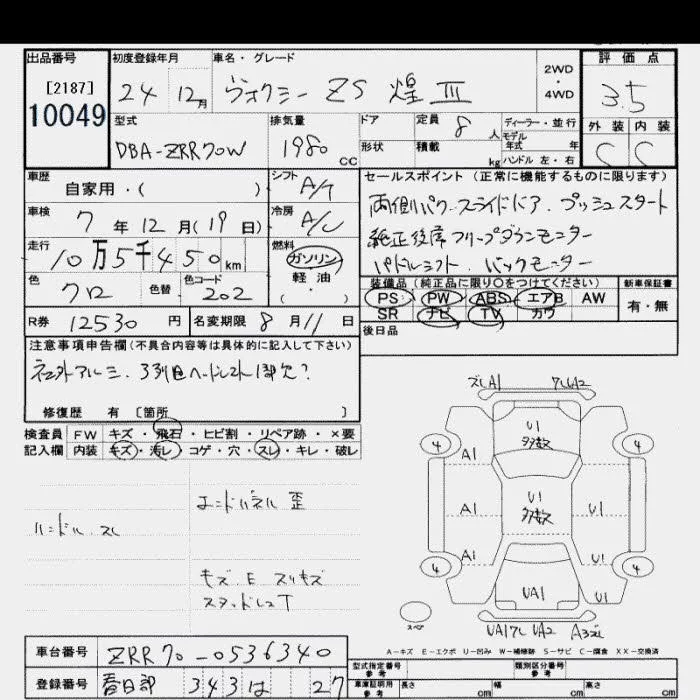 出品番号 初度登録年月 車名・グレード 2WD・4WD 評価点
[2187]
10049
24 12月 ヴォクシー ZS 煌 III
3.5
型式 排気量 ドア 定員 8人 ディーラー・並行
モデル年式 年
外装 内装
DBA-ZRR70W 1980 CC 形状 積載 kg ハンドル 左・右
C C
車歴 自家用・( ) シフト A/T
セールスポイント(正常に機能するものに限ります)
両側パワースライドドア プッシュスタート
純正後席フリップダウンモニター
パドルシフト バックモニター
車検 7年12月(19日) 冷房 A/C
走行 10万5千450km 燃料 ガソリン 軽油・( )
色 クロ 色替 色コード 202
装備品(純正品に限り○をつけてください) 新車保証書
PS PW ABS エアB AW 有・無
SR ナビ TV カワ
R券 12530円 名変期限 8月11日
後日品
注意事項申告欄(不具合内容等は具体的に記入して下さい)
ネ工外アルミ、3列目ヘッドレスト1部欠?
修復歴 有 〔箇所 〕
検査員 FW キズ・飛石・ヒビ割・リペア跡・×要
記入欄 内装 キズ・汚レ・コゲ・穴・スレ・キレ・破レ
エンドパネル歪
ハンドル スレ
キズ E スリキズ
スタッドレスT
ズレA1
4 U1 多数 4
A1
A1 U1 多数 U1
A1 U1
4 UA1 4
スペア
UA2 A3ズレ
A-キズ E-エクボ U-凹み W-補修跡 S-サビ C-腐食 XX-交換済
車台番号 ZRR70-0536340
型式指定番号 参考 類別区分番号 参考
登録番号 春日部 343 は 27
車庫証明用 参考 長さ cm 幅 cm 高さ cm